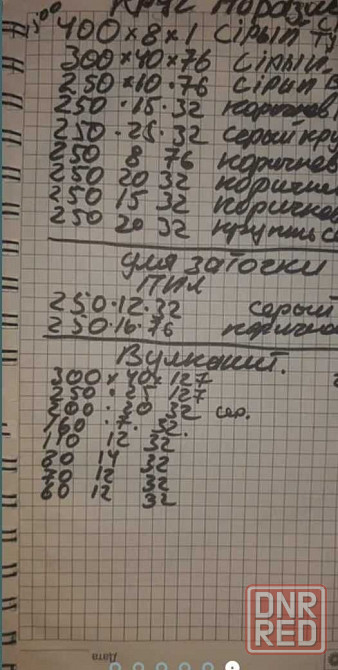 Круг
400×8×1 Сірый
300×40×76 Сірый
250×10·76 Сірий
250·15·32
250·25·32 серый
250 8 76 коричнев
250 20 32
250 15 32 коричнев
250 20 32
для заточки
пил
250·12·32 серый
250·16·76
Вулканит.
300×40×127
250·25 127
200·20 32 сер.
160·7·32.
110 12 32
80 14 32
12 32
60 12 32
DNR
RED
Дата